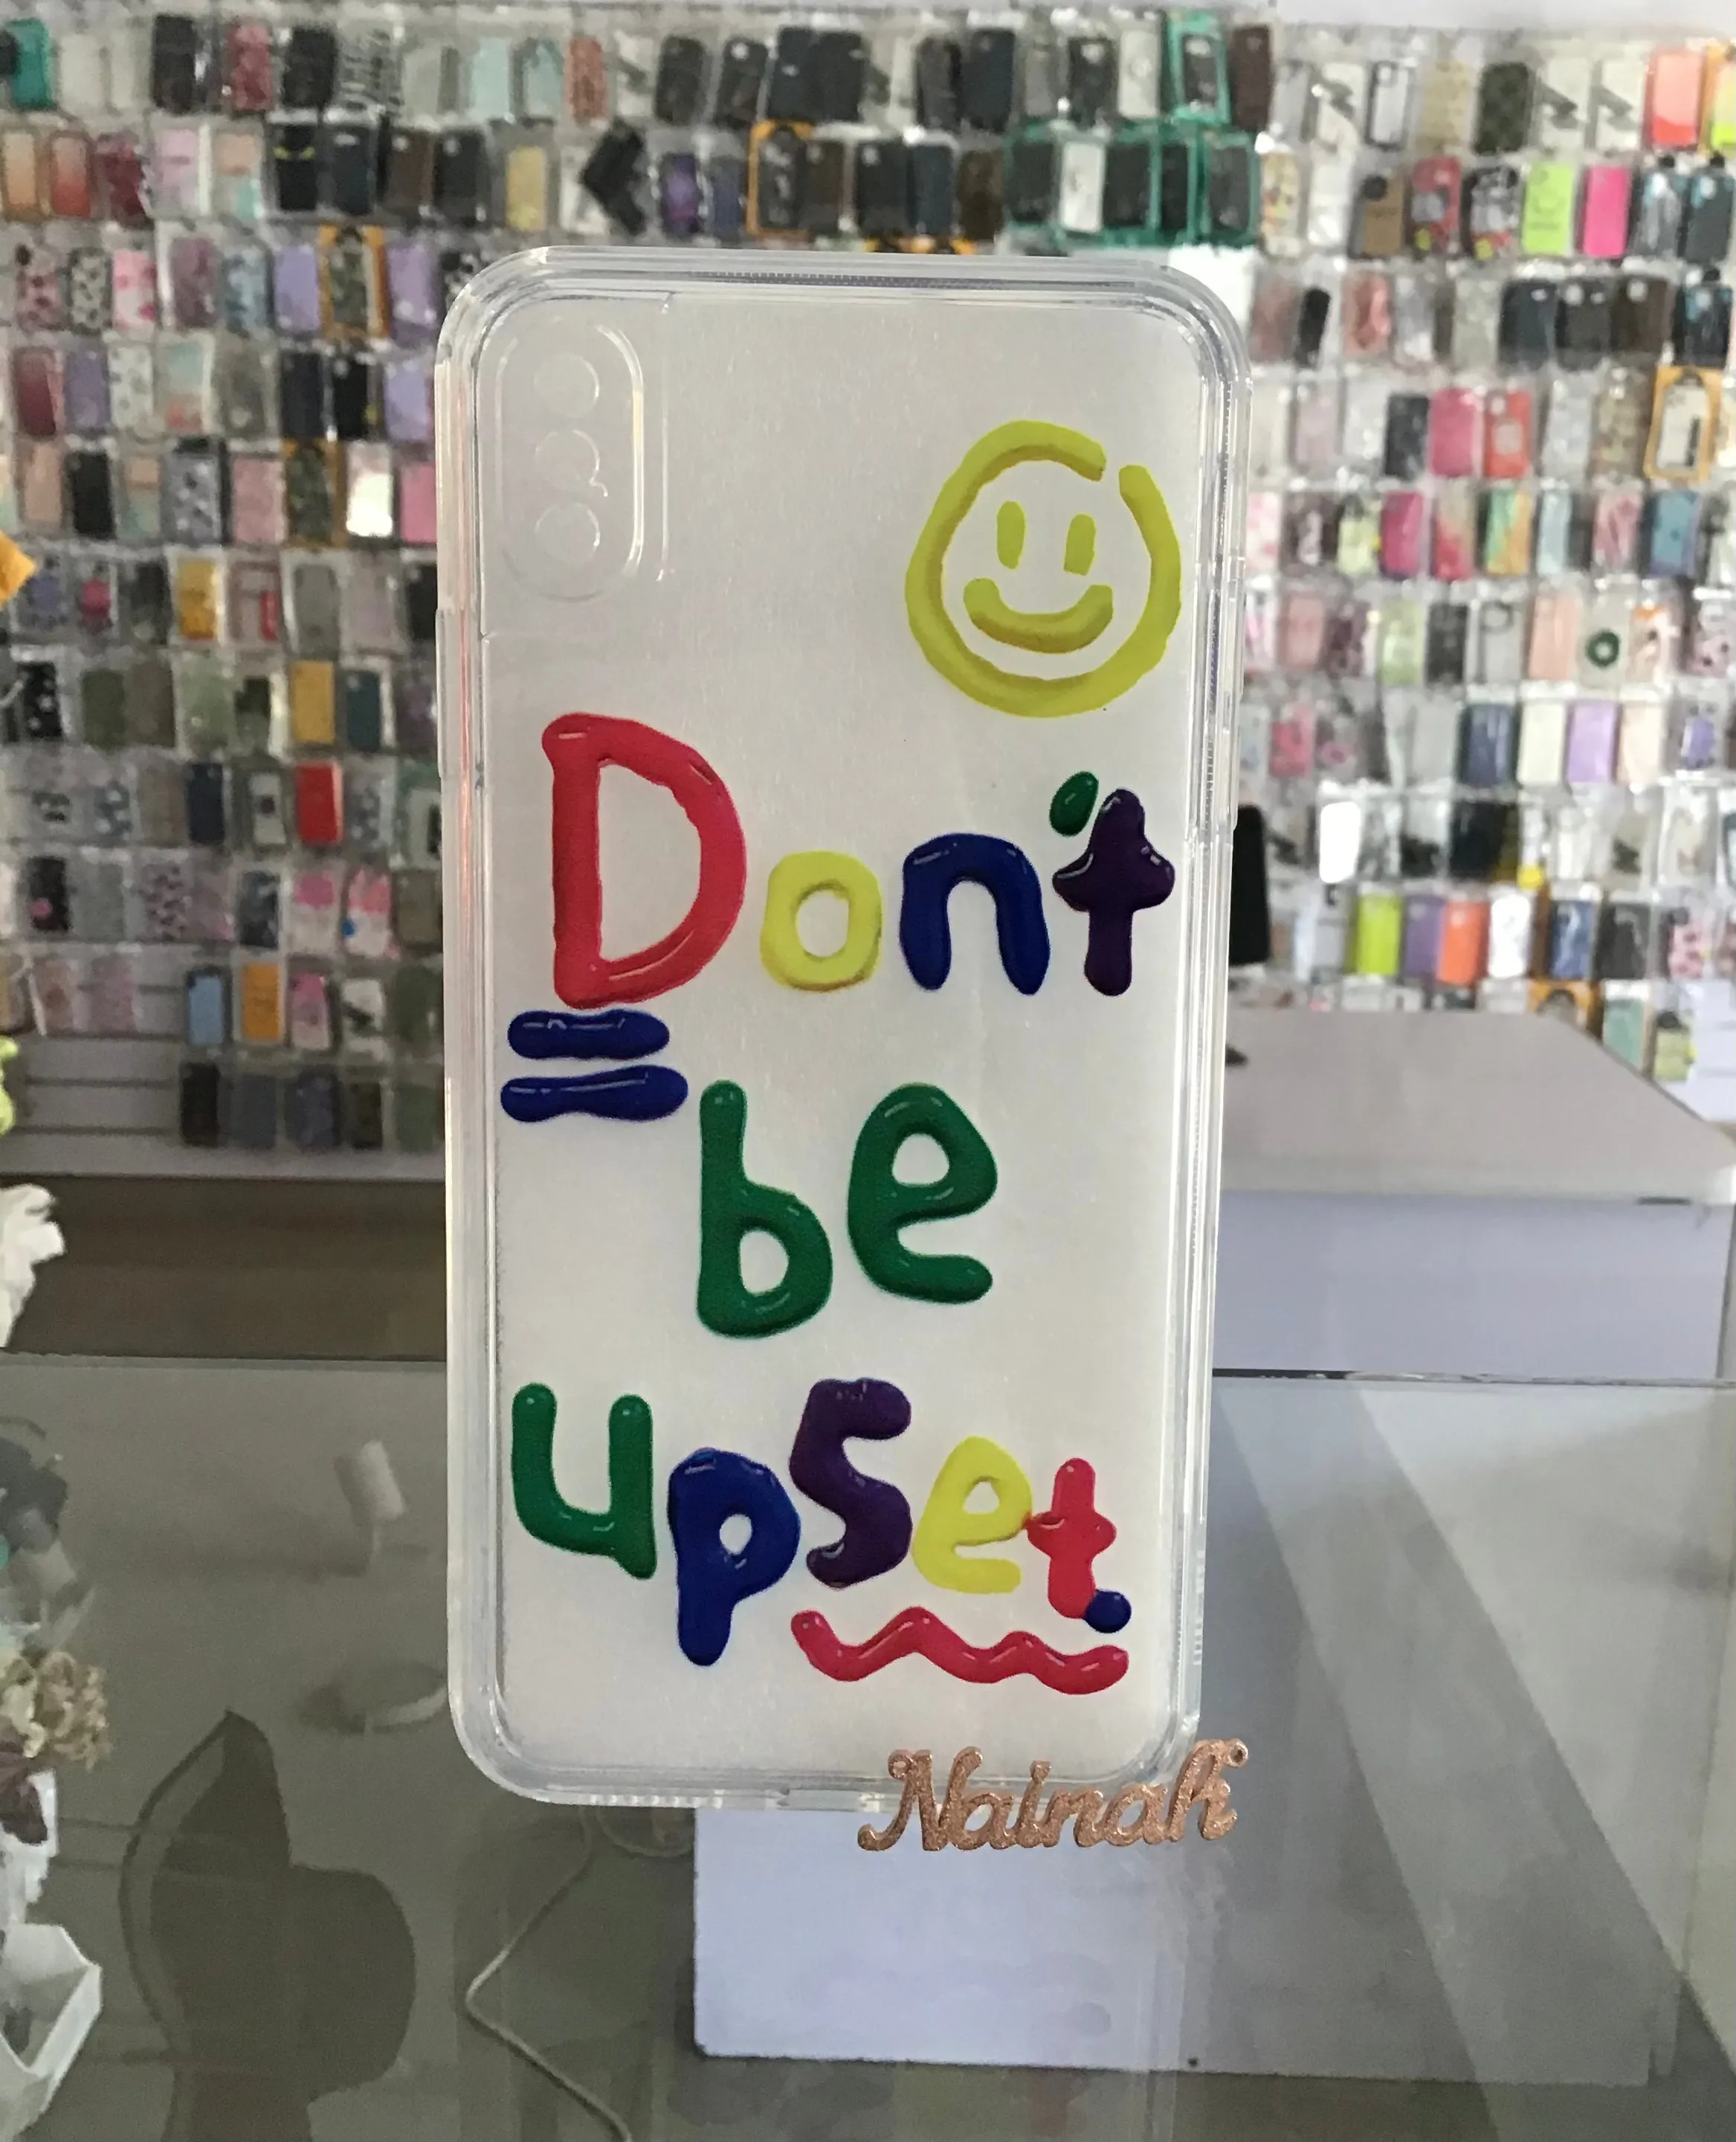 Don't
be
upset.
Nainah